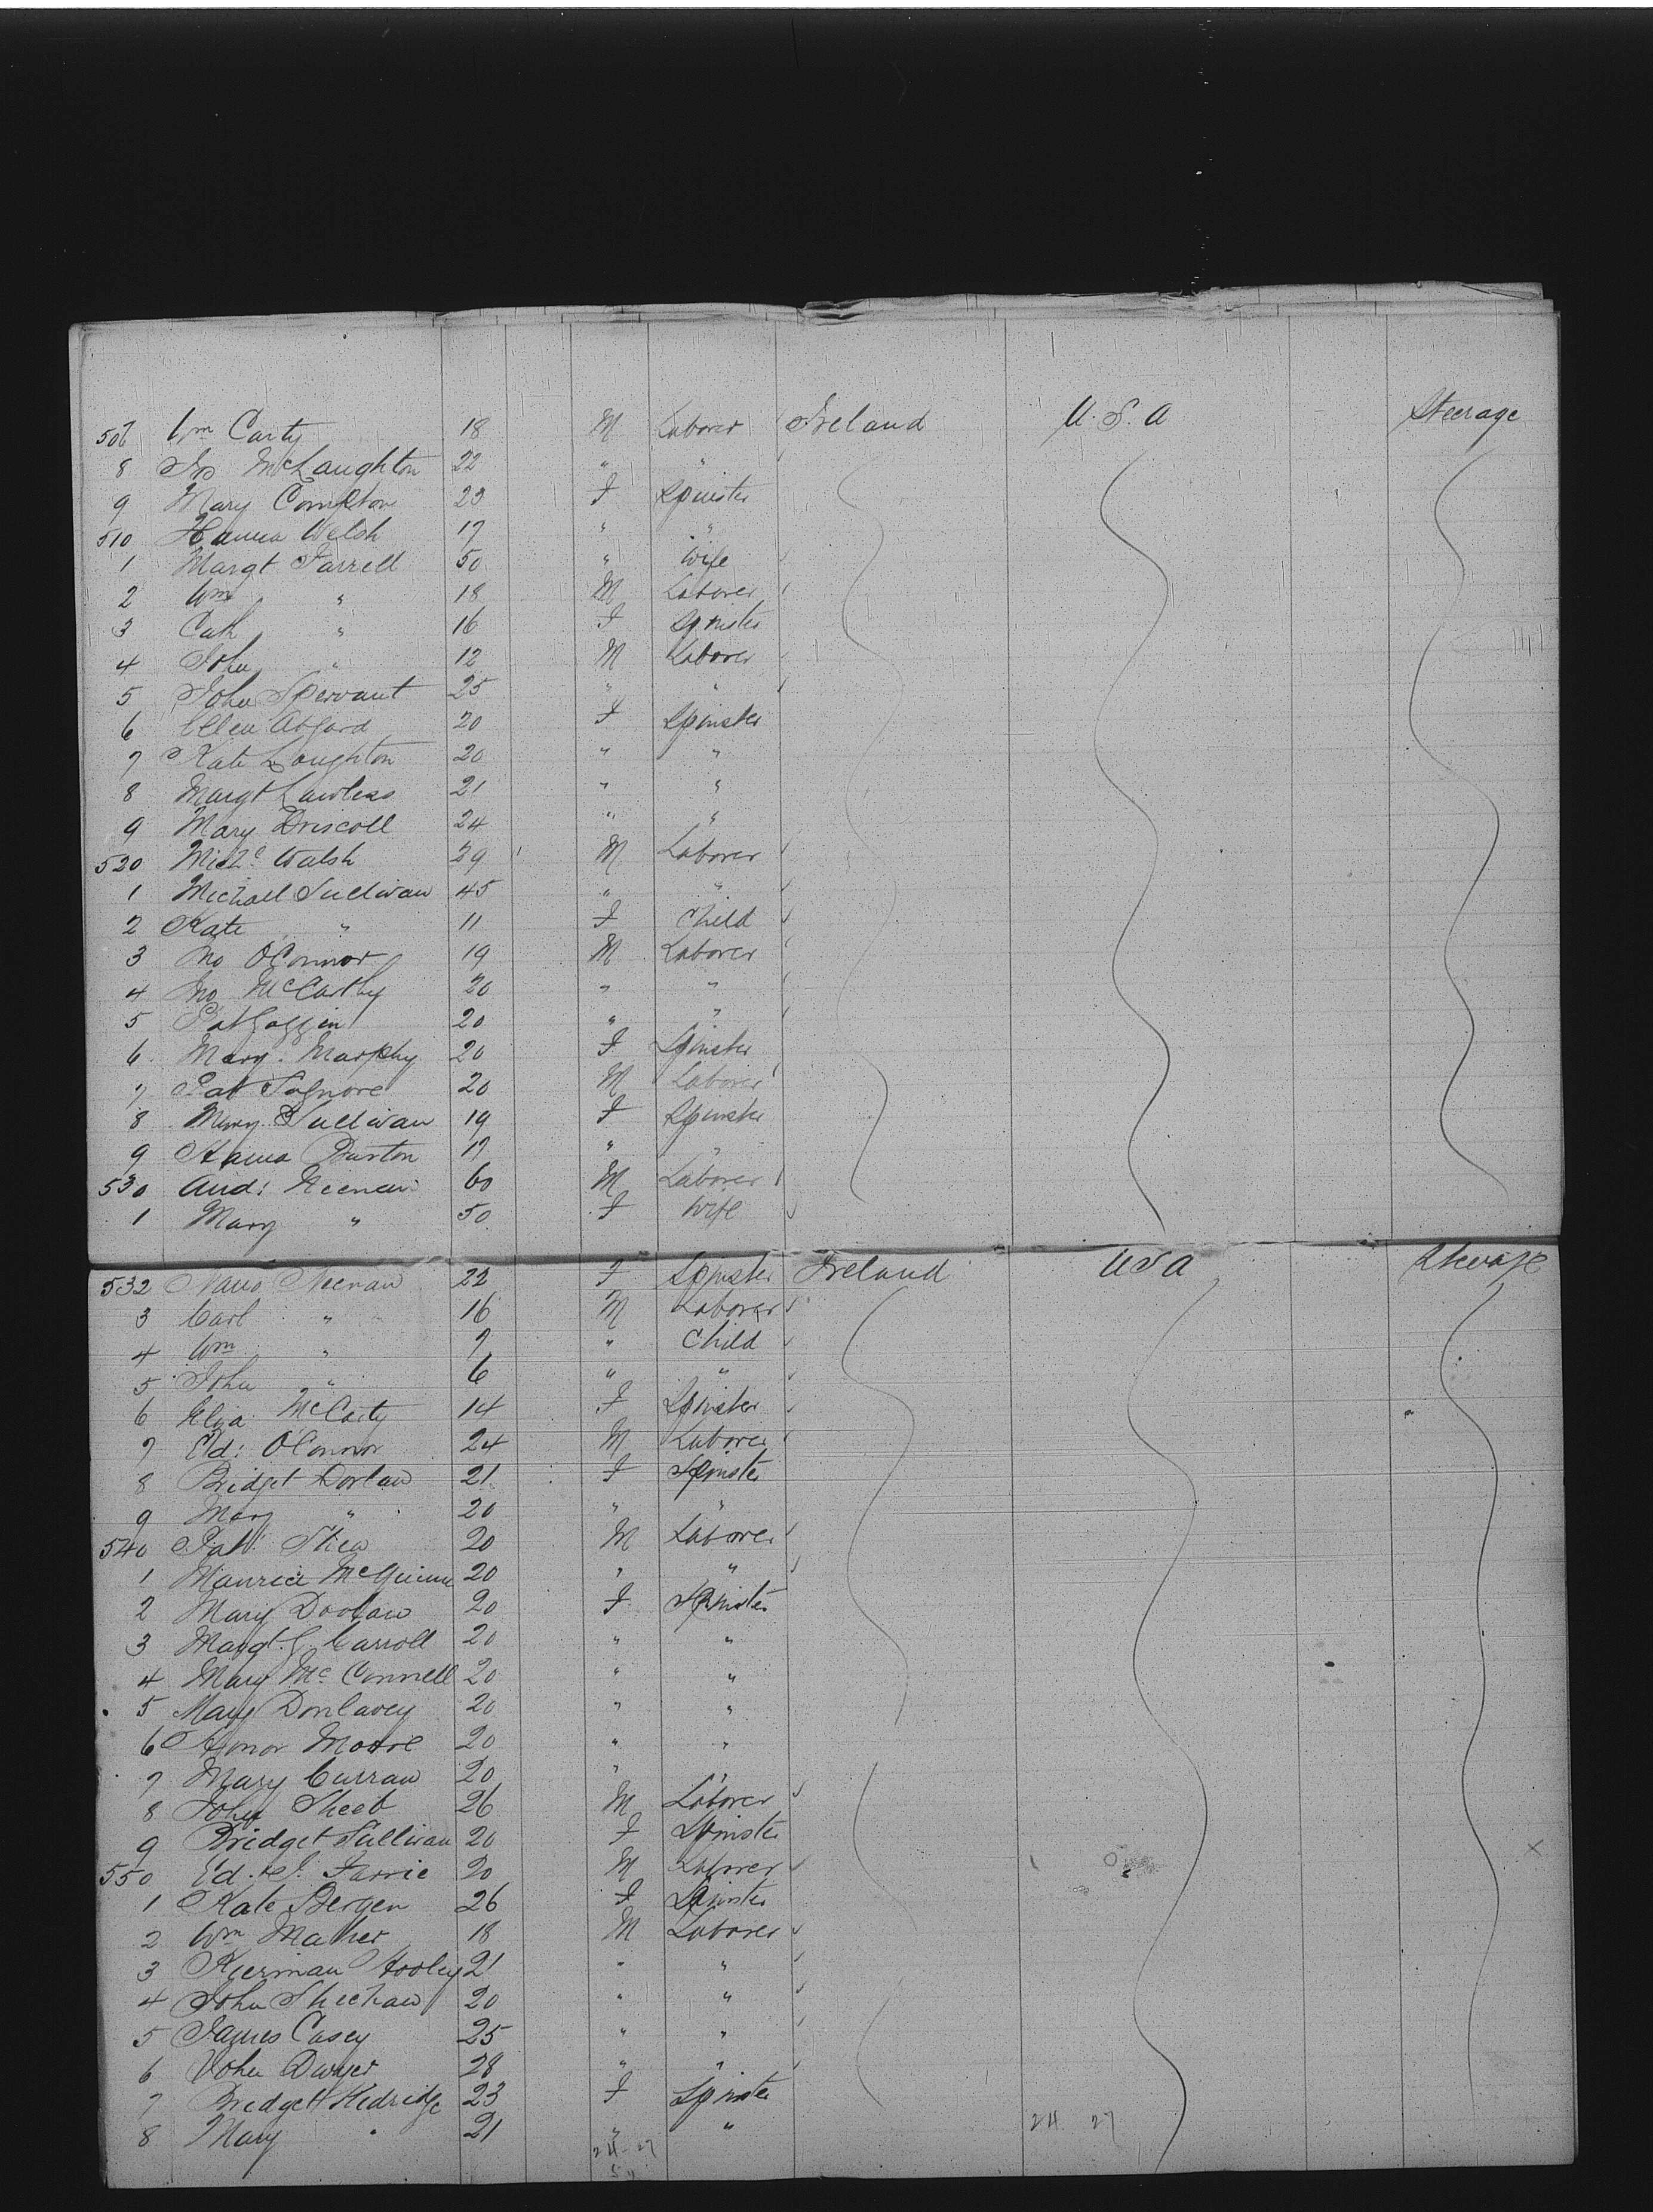 507 Wm Carty 18 M Laborer Ireland U.S.A Steerage
8 Jno McLaughton 22 " "
9 Mary Compton 23 F Spinster
510 Hanna Welsh 17 " "
1 Margt Farrell 50 " Wife
2 Wm " 18 M Laborer
3 Cath " 16 F Spinster
4 John " 12 M Laborer
5 John Spervant 25 " "
6 Ellen 20 F Spinster
7 Kate Loughton 20 " "
8 Margt Lawless 21 " "
9 Mary Driscoll 24 " "
520 Michl Walsh 29 M Laborer
1 Michael Sullivan 45 " "
2 Kate " 11 F Child
3 Jno OConnor 19 M Laborer
4 Jno McCarthy 20 " "
5 Pat Goggin 20 " "
6 Mary Murphy 20 F Spinster
7 Pat 20 M Laborer
8 Mary Sullivan 19 F Spinster
9 Hanna Burton 17 " "
530 And: Keenan 60 M Laborer
1 Mary " 50 F Wife
532 Keenan 22 F Spinster Ireland USA Steerage
3 Carl " 16 M Laborer
4 Wm " 7 " Child
5 John " 6 " "
6 Eliza McCarty 14 F Spinster
7 Ed: OConnor 24 M Laborer
8 Bridget Dorlan 21 F Spinster
9 Mary " 20 " "
540 Pat: Shea 20 M Laborer
1 Maurice McGuinne 20 " "
2 Mary Doolan 20 F Spinster
3 Margt Carroll 20 " "
4 Mary McConnell 20 " "
5 Mary Donlavey 20 " "
6 Honor Moore 20 " "
7 Mary Curran 20 " "
8 John Sheeb 26 M Laborer
9 Bridget Sullivan 20 F Spinster
550 Ed. 20 M Laborer
1 Kate Bergen 26 F Spinster
2 Wm Maher 18 M Laborer
3 Kierman Hooley 21 " "
4 John Sheehan 20 " "
5 James Casey 25 " "
6 John Dwyer 28 " "
7 Bridget Kedridge 23 F Spinster
8 Mary " 21 " "
24 27 24 27